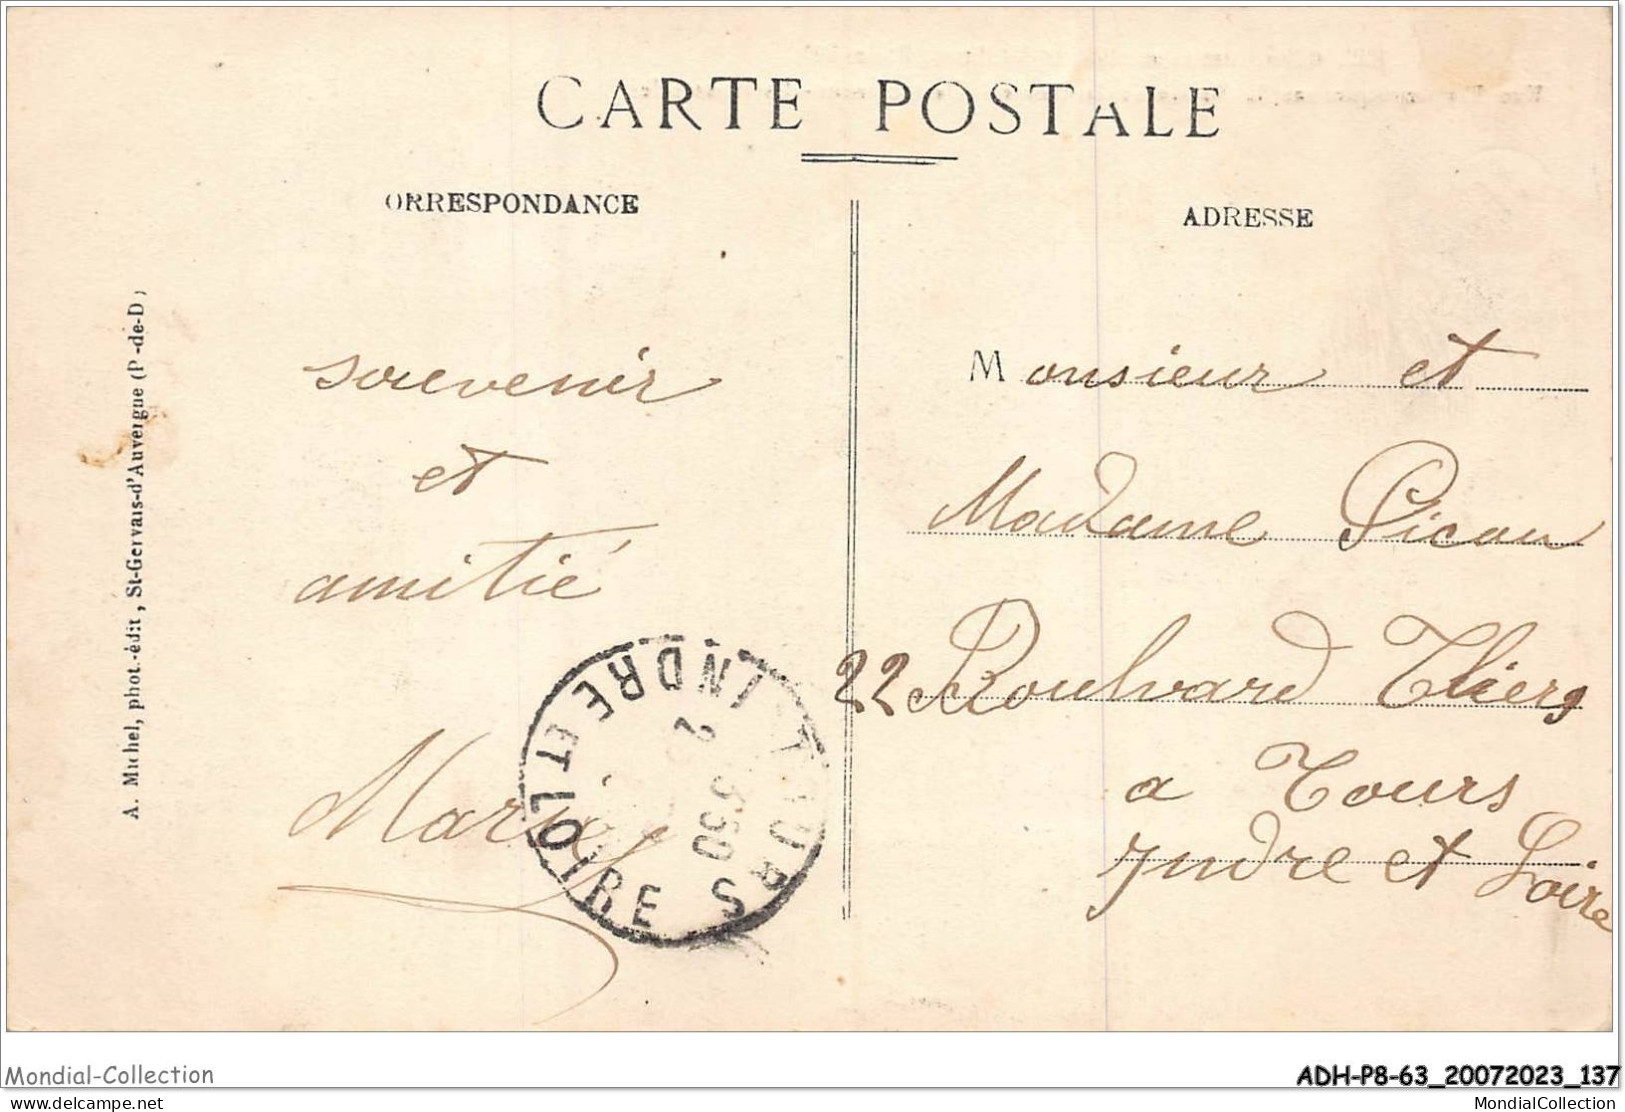 CARTE POSTALE
ORRESPONDANCE
ADRESSE
A. Michel, phot.-édit, St-Gervais-d'Auvergne (P-de-D)
souvenir
et
amitié
Marie
TOURS
INDRE ET LOIRE
Monsieur et
Madame Picau
22 Boulvard Thiers
a Tours
Indre et Loire
Mondial-Collection
ADH-P8-63_20072023_137
delcampe.net
MondialCollection